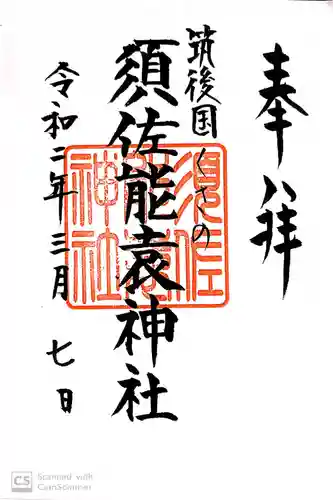 奉拝
筑後国くさの
須佐能袁神社
令和二年三月七日
須佐能袁神社
CS Scanned with
CamScanner